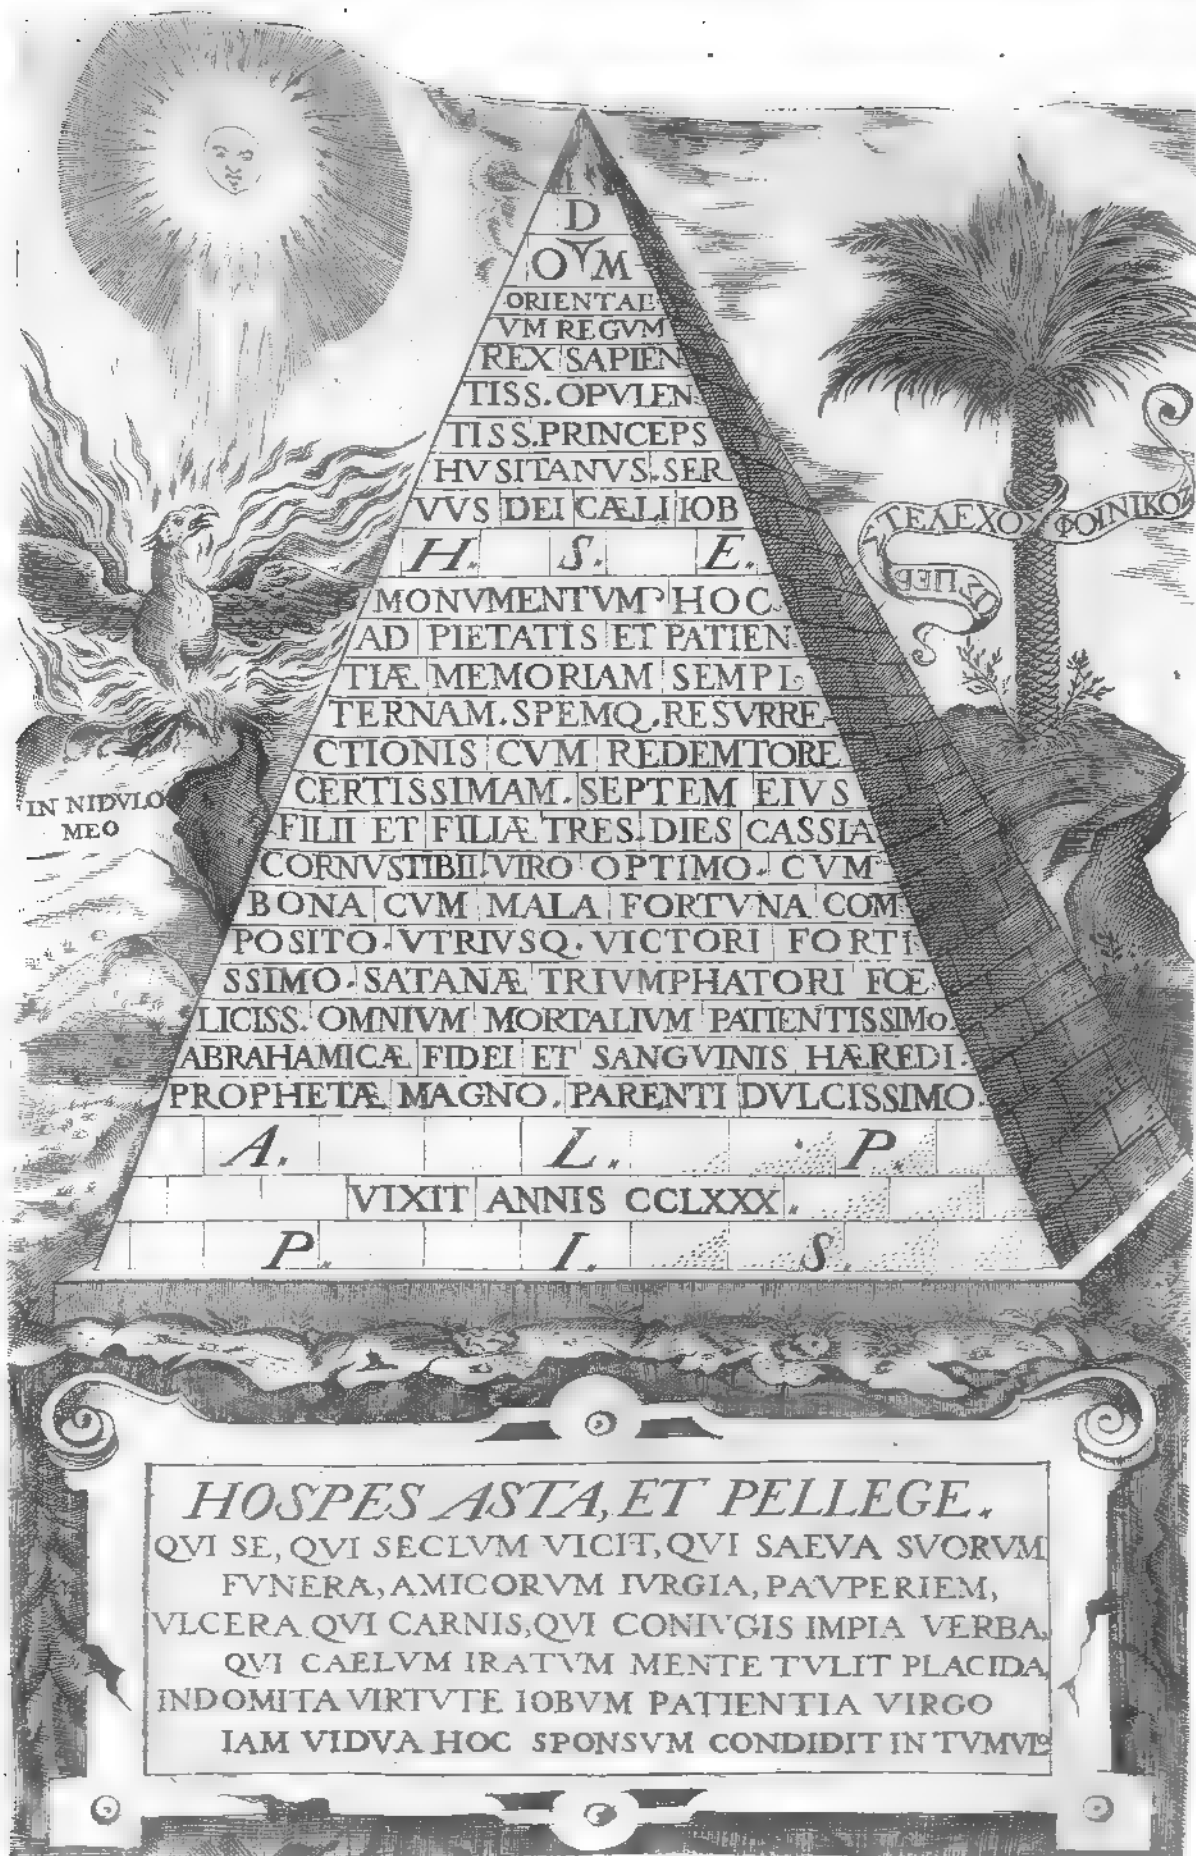 D
OYM
ORIENTAL
VM REGVM
REX SAPIEN
TISS. OPVLEN
TISS. PRINCEPS
HVSITANVS. SER
VVS DEI CÆLI IOB
H. S. E.
MONVMENTVM HOC
AD PIETATIS ET PATIEN
TIÆ MEMORIAM SEMPI
TERNAM. SPEMQ. RESVRRE
CTIONIS CVM REDEMTORE
CERTISSIMAM. SEPTEM EIVS
FILII ET FILIÆ TRES. DIES CASSIA
CORNVSTIBII. VIRO OPTIMO. CVM
BONA CVM MALA FORTVNA COM
POSITO. VTRIVSQ. VICTORI FORTI
SSIMO. SATANÆ TRIVMPHATORI FŒ
LICISS. OMNIVM MORTALIVM PATIENTISSIMO.
ABRAHAMICÆ FIDEI ET SANGVINIS HÆREDI.
PROPHETÆ MAGNO. PARENTI DVLCISSIMO.
A. L. P.
VIXIT ANNIS CCLXXX.
P. I. S.
IN NIDVLO
MEO
ΩΣΠΕΡ
ΣΤΕΛΕΧΟΣ ΦΟΙΝΙΚΟΣ
HOSPES ASTA, ET PELLEGE.
QVI SE, QVI SECLVM VICIT, QVI SAEVA SVORVM
FVNERA, AMICORVM IVRGIA, PAVPERIEM,
VLCERA QVI CARNIS, QVI CONIVGIS IMPIA VERBA,
QVI CAELVM IRATVM MENTE TVLIT PLACIDA,
INDOMITA VIRTVTE IOBVM PATIENTIA VIRGO
IAM VIDVA HOC SPONSVM CONDIDIT IN TVMVLO